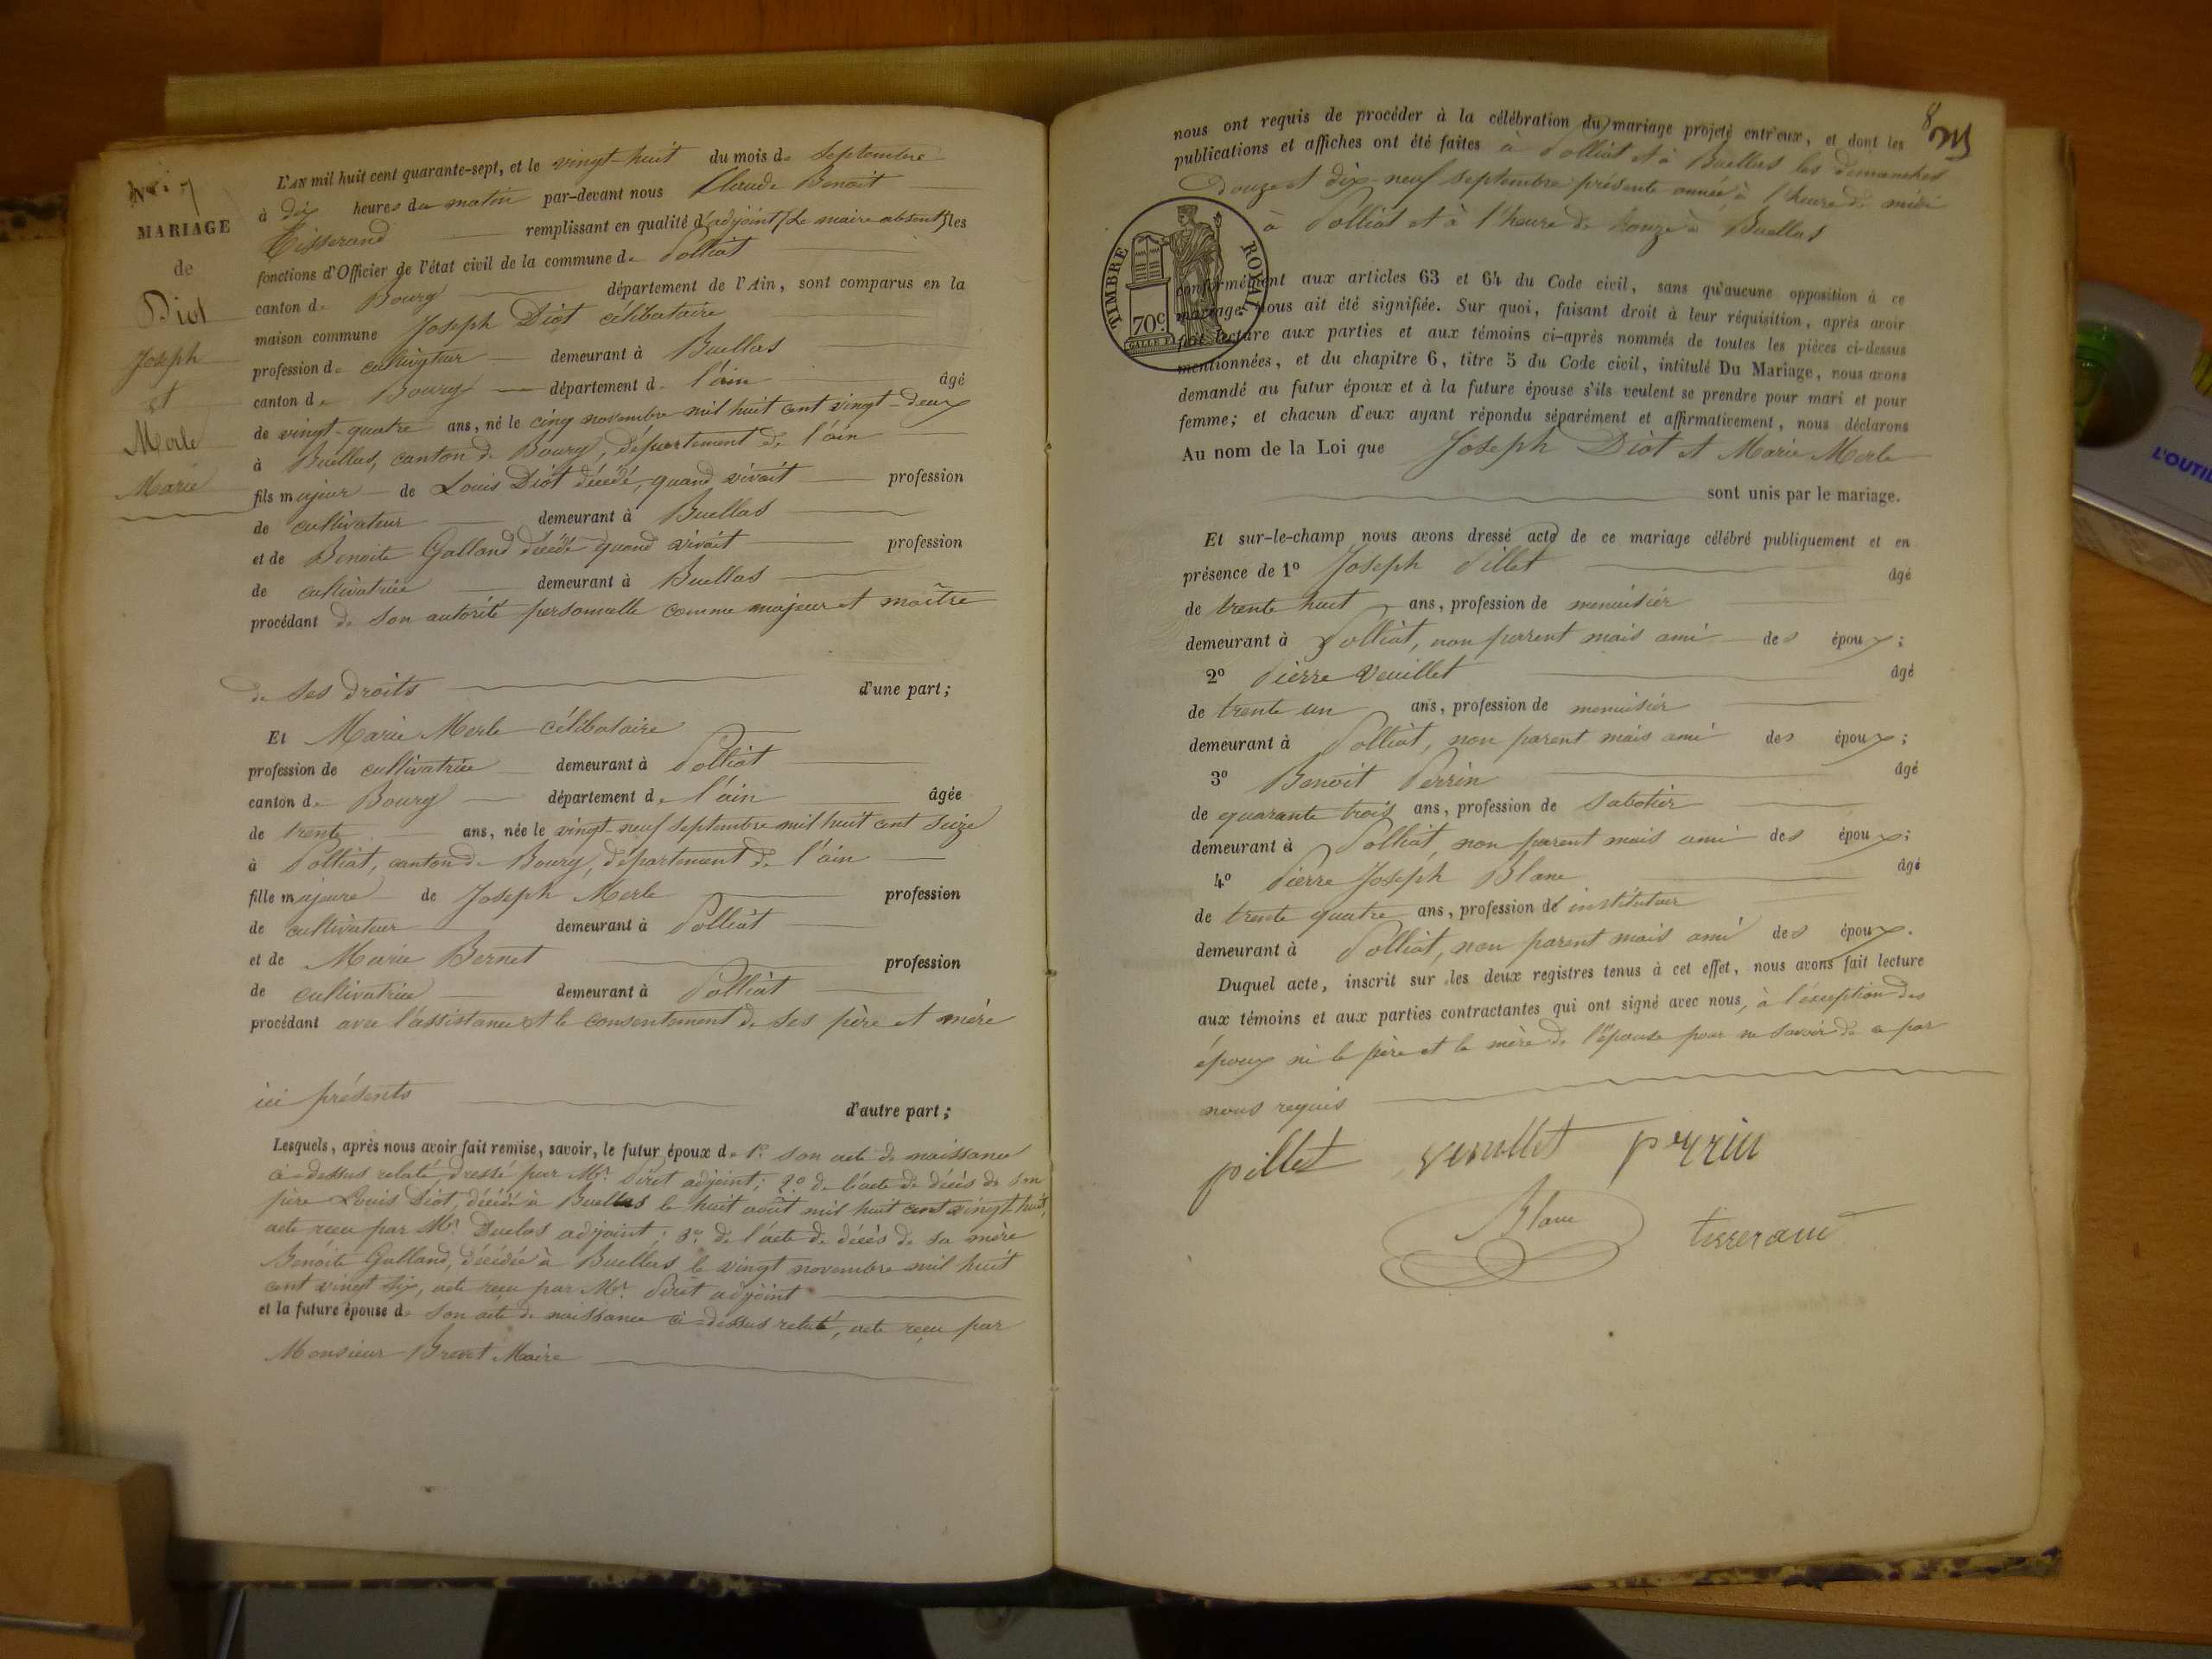 N° 7
MARIAGE
de
Diot
Joseph
et
Merle
Marie
L'AN mil huit cent quarante-sept, et le vingt-huit du mois de Septembre
à dix heures du matin par-devant nous Claude Benoit
Tisserand remplissant en qualité d'adjoint (le maire absent) les
fonctions d'Officier de l'état civil de la commune de Polliat
canton de Bourg département de l'Ain, sont comparus en la
maison commune Joseph Diot célibataire
profession de cultivateur demeurant à Buellas
canton de Bourg département de l'ain âgé
de vingt-quatre ans, né le cinq novembre mil huit cent vingt-deux
à Buellas, canton de Bourg, département de l'ain
fils majeur de Louis Diot décédé, quand vivait profession
de cultivateur demeurant à Buellas
et de Benoite Galland décédé quand vivait profession
de cultivatrice demeurant à Buellas
procédant de son autorité personnelle comme majeur et maître
de ses droits d'une part;
Et Marie Merle célibataire
profession de cultivatrice demeurant à Polliat
canton de Bourg département de l'ain âgée
de trente ans, née le vingt-neuf septembre mil huit cent seize
à Polliat, canton de Bourg, département de l'ain
fille majeure de Joseph Merle profession
de cultivateur demeurant à Polliat
et de Marie Bernet profession
de cultivatrice demeurant à Polliat
procédant avec l'assistance et le consentement de ses père et mère
ici présents d'autre part;
Lesquels, après nous avoir fait remise, savoir, le futur époux de 1° son acte de naissance
ci-dessus relaté, dressé par Mr. Piret adjoint; 2° de l'acte de décès de son
père Louis Diot, décédé à Buellas le huit août mil huit cent vingt-huit,
acte reçu par Mr. Duclos adjoint; 3° de l'acte de décès de sa mère
Benoite Galland, décédée à Buellas le vingt novembre mil huit
cent vingt six, acte reçu par Mr. Piret adjoint
et la future épouse de son acte de naissance ci-dessus relaté, acte reçu par
Monsieur Brevet Maire
8
nous ont requis de procéder à la célébration du mariage projeté entr'eux, et dont les
publications et affiches ont été faites à Polliat et à Buellas les dimanches
Douze et dix-neuf septembre présente année, à l'heure de midi
à Polliat et à l'heure de onze à Buellas
TIMBRE ROYAL
70c
GALLE F.
conformément aux articles 63 et 64 du Code civil, sans qu'aucune opposition à ce
mariage nous ait été signifiée. Sur quoi, faisant droit à leur réquisition, après avoir
fait lecture aux parties et aux témoins ci-après nommés de toutes les pièces ci-dessus
mentionnées, et du chapitre 6, titre 5 du Code civil, intitulé Du Mariage, nous avons
demandé au futur époux et à la future épouse s'ils veulent se prendre pour mari et pour
femme; et chacun d'eux ayant répondu séparément et affirmativement, nous déclarons
Au nom de la Loi que Joseph Diot et Marie Merle
sont unis par le mariage.
Et sur-le-champ nous avons dressé acte de ce mariage célébré publiquement et en
présence de 1° Joseph Pillet âgé
de trente huit ans, profession de menuisier
demeurant à Polliat, non parent mais ami des époux;
2° Pierre Veuillet âgé
de trente un ans, profession de menuisier
demeurant à Polliat, non parent mais ami des époux;
3° Benoit Perrin âgé
de quarante trois ans, profession de sabotier
demeurant à Polliat non parent mais ami des époux;
4° Pierre Joseph Blanc âgé
de trente quatre ans, profession de instituteur
demeurant à Polliat, non parent mais ami des époux.
Duquel acte, inscrit sur les deux registres tenus à cet effet, nous avons fait lecture
aux témoins et aux parties contractantes qui ont signé avec nous, à l'exception des
époux ni le père et la mère de l'épouse pour ne savoir de ce par
nous requis
pillet veuillet perrin
Blanc tisserand
L'OUTIL